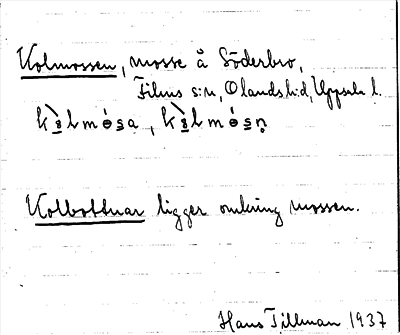 Kolmossen, mosse å Söderbro,
Films s:n, Olands hd, Uppsala l.
kò̱lmós̱a, kò̱lmós̱ṇ
Kolbottnar ligger omkring mossen.
Hans Tillman 1937